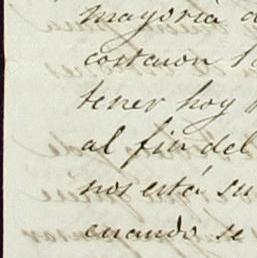 mayoria d
costaron l
tener hoy
al fin del
nos está su
cuando se